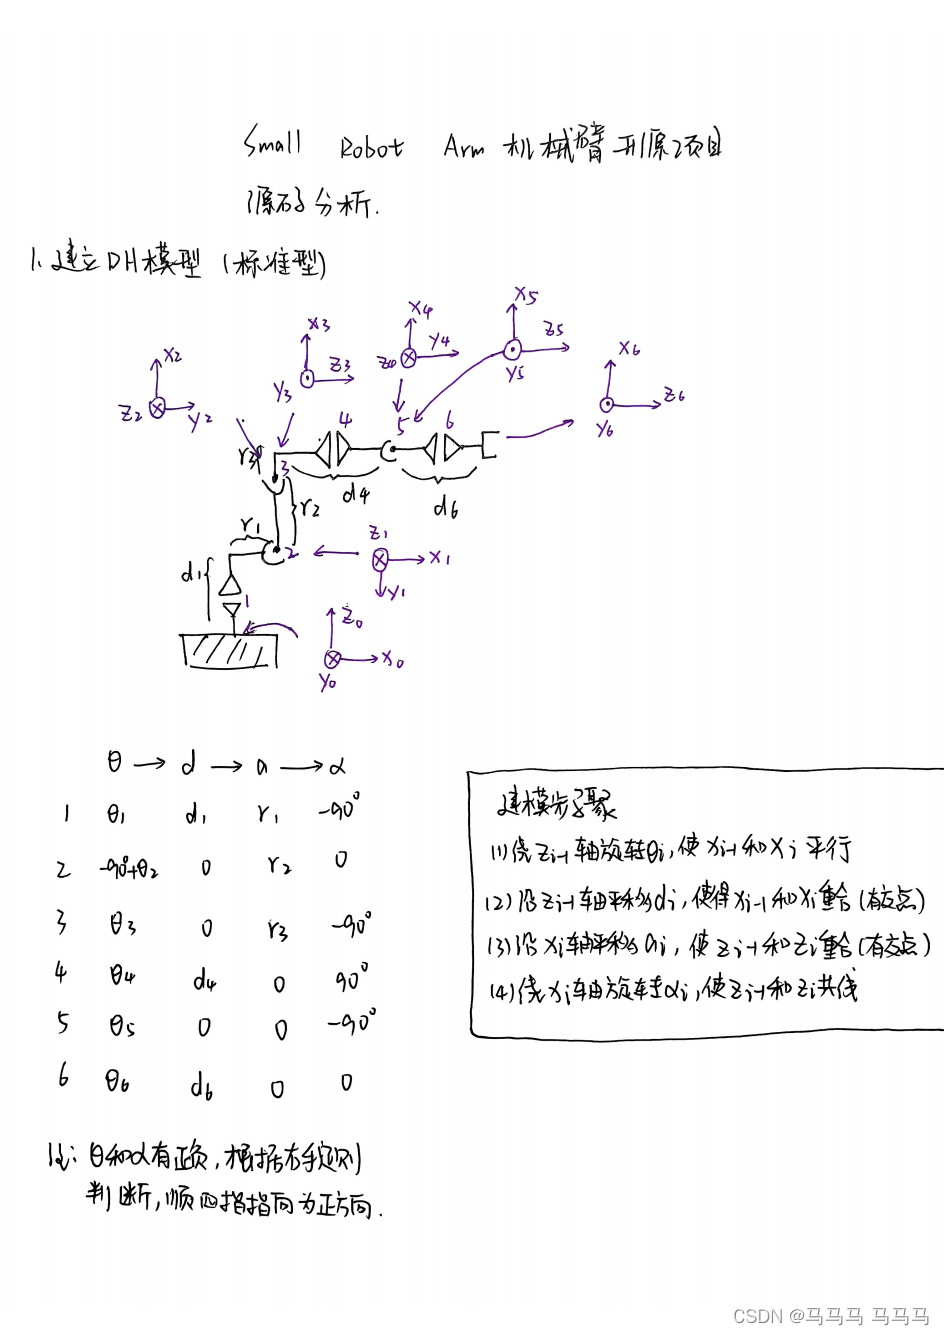 Small Robot Arm 机械臂开源项目
源码分析.
1. 建立DH模型 (标准型)
X5
X4
X3
Z5
X2
Y4
X6
Z3
Z4
Y5
Y3
Z6
Z2
Y2
Y6
4
5
6
r3
3
d4
r2
d6
r1
Z1
2
X1
d1
Y1
1
Z0
X0
Y0
θ → d → a → α
1 θ1 d1 r1 -90°
2 -90°+θ2 0 r2 0
3 θ3 0 r3 -90°
4 θ4 d4 0 90°
5 θ5 0 0 -90°
6 θ6 d6 0 0
建模步骤
(1) 绕Zi-1轴旋转θi,使Xi-1和Xi平行
(2) 沿Zi-1轴平移di,使得Xi-1和Xi重合(有交点)
(3) 沿Xi轴平移ai,使Zi-1和Zi重合(有交点)
(4) 绕Xi轴旋转αi,使Zi-1和Zi共线
注: θ和α有正负,根据右手定则
判断,顺四指指向为正方向.
CSDN @马马马 马马马